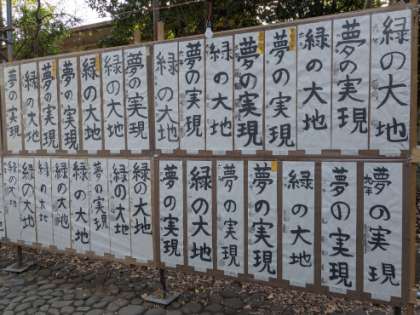 緑の大地
夢の実現
緑の大地
夢の実現
夢の実現
緑の大地
夢の実現
緑の大地
夢の実現
緑の大地
緑の大地
夢の実現
夢の実現
緑の大地
夢の実現
夢の実現
夢の実現
緑の大地
夢の実現
夢の実現
緑の大地
夢の実現
緑の大地
緑の大地
夢の実現
緑の大地
緑の大地
緑の大地
緑の大地
緑の大地